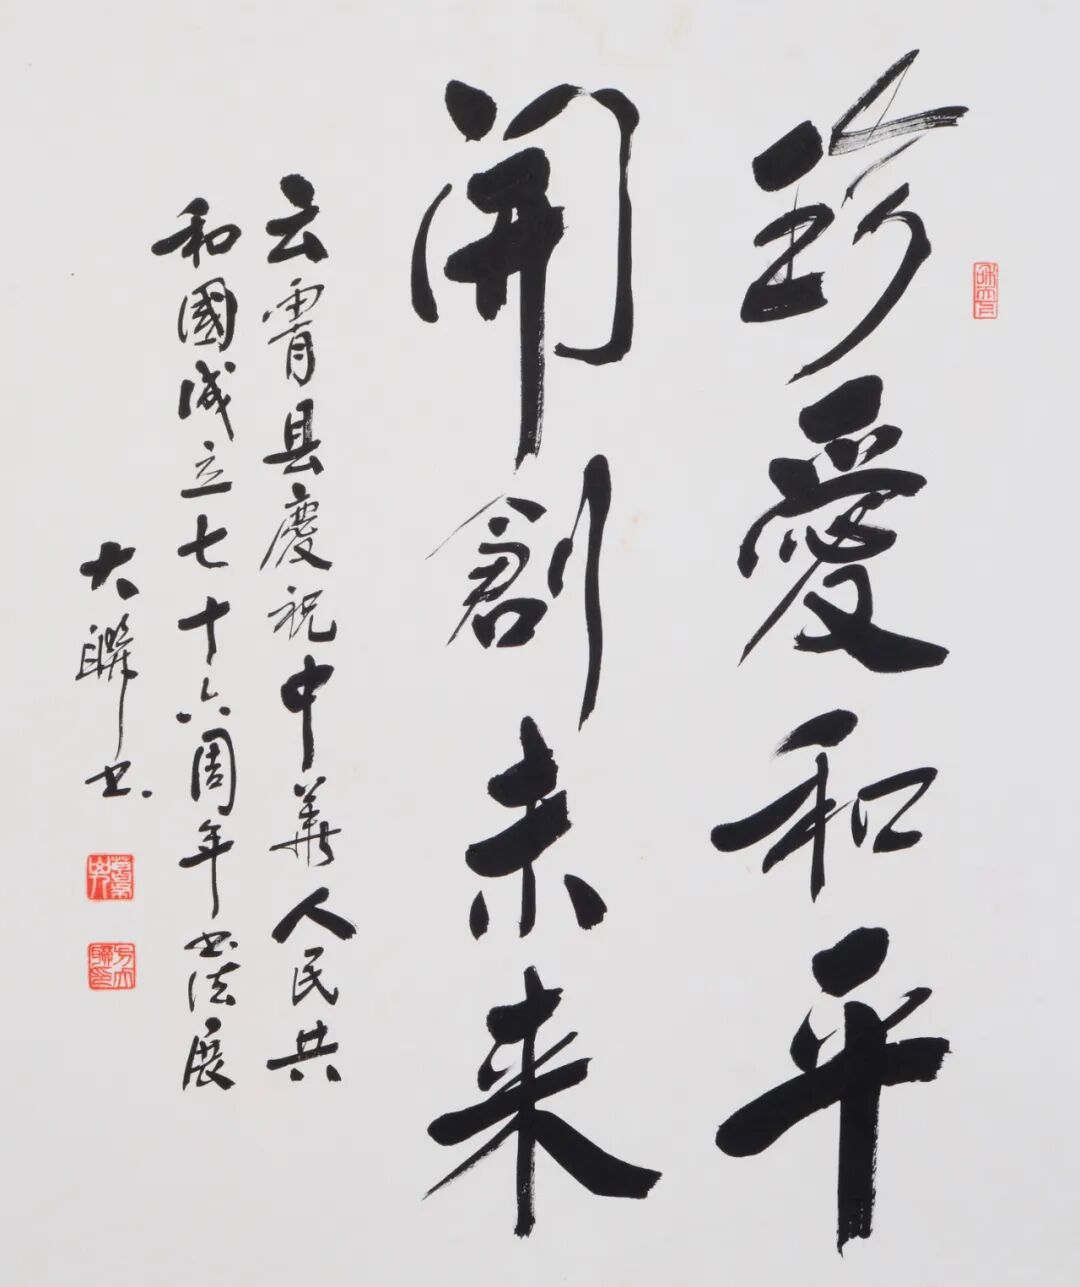 珍愛和平
開創未来
云霄县慶祝中華人民共
和國成立七十六周年书法展
大聯书